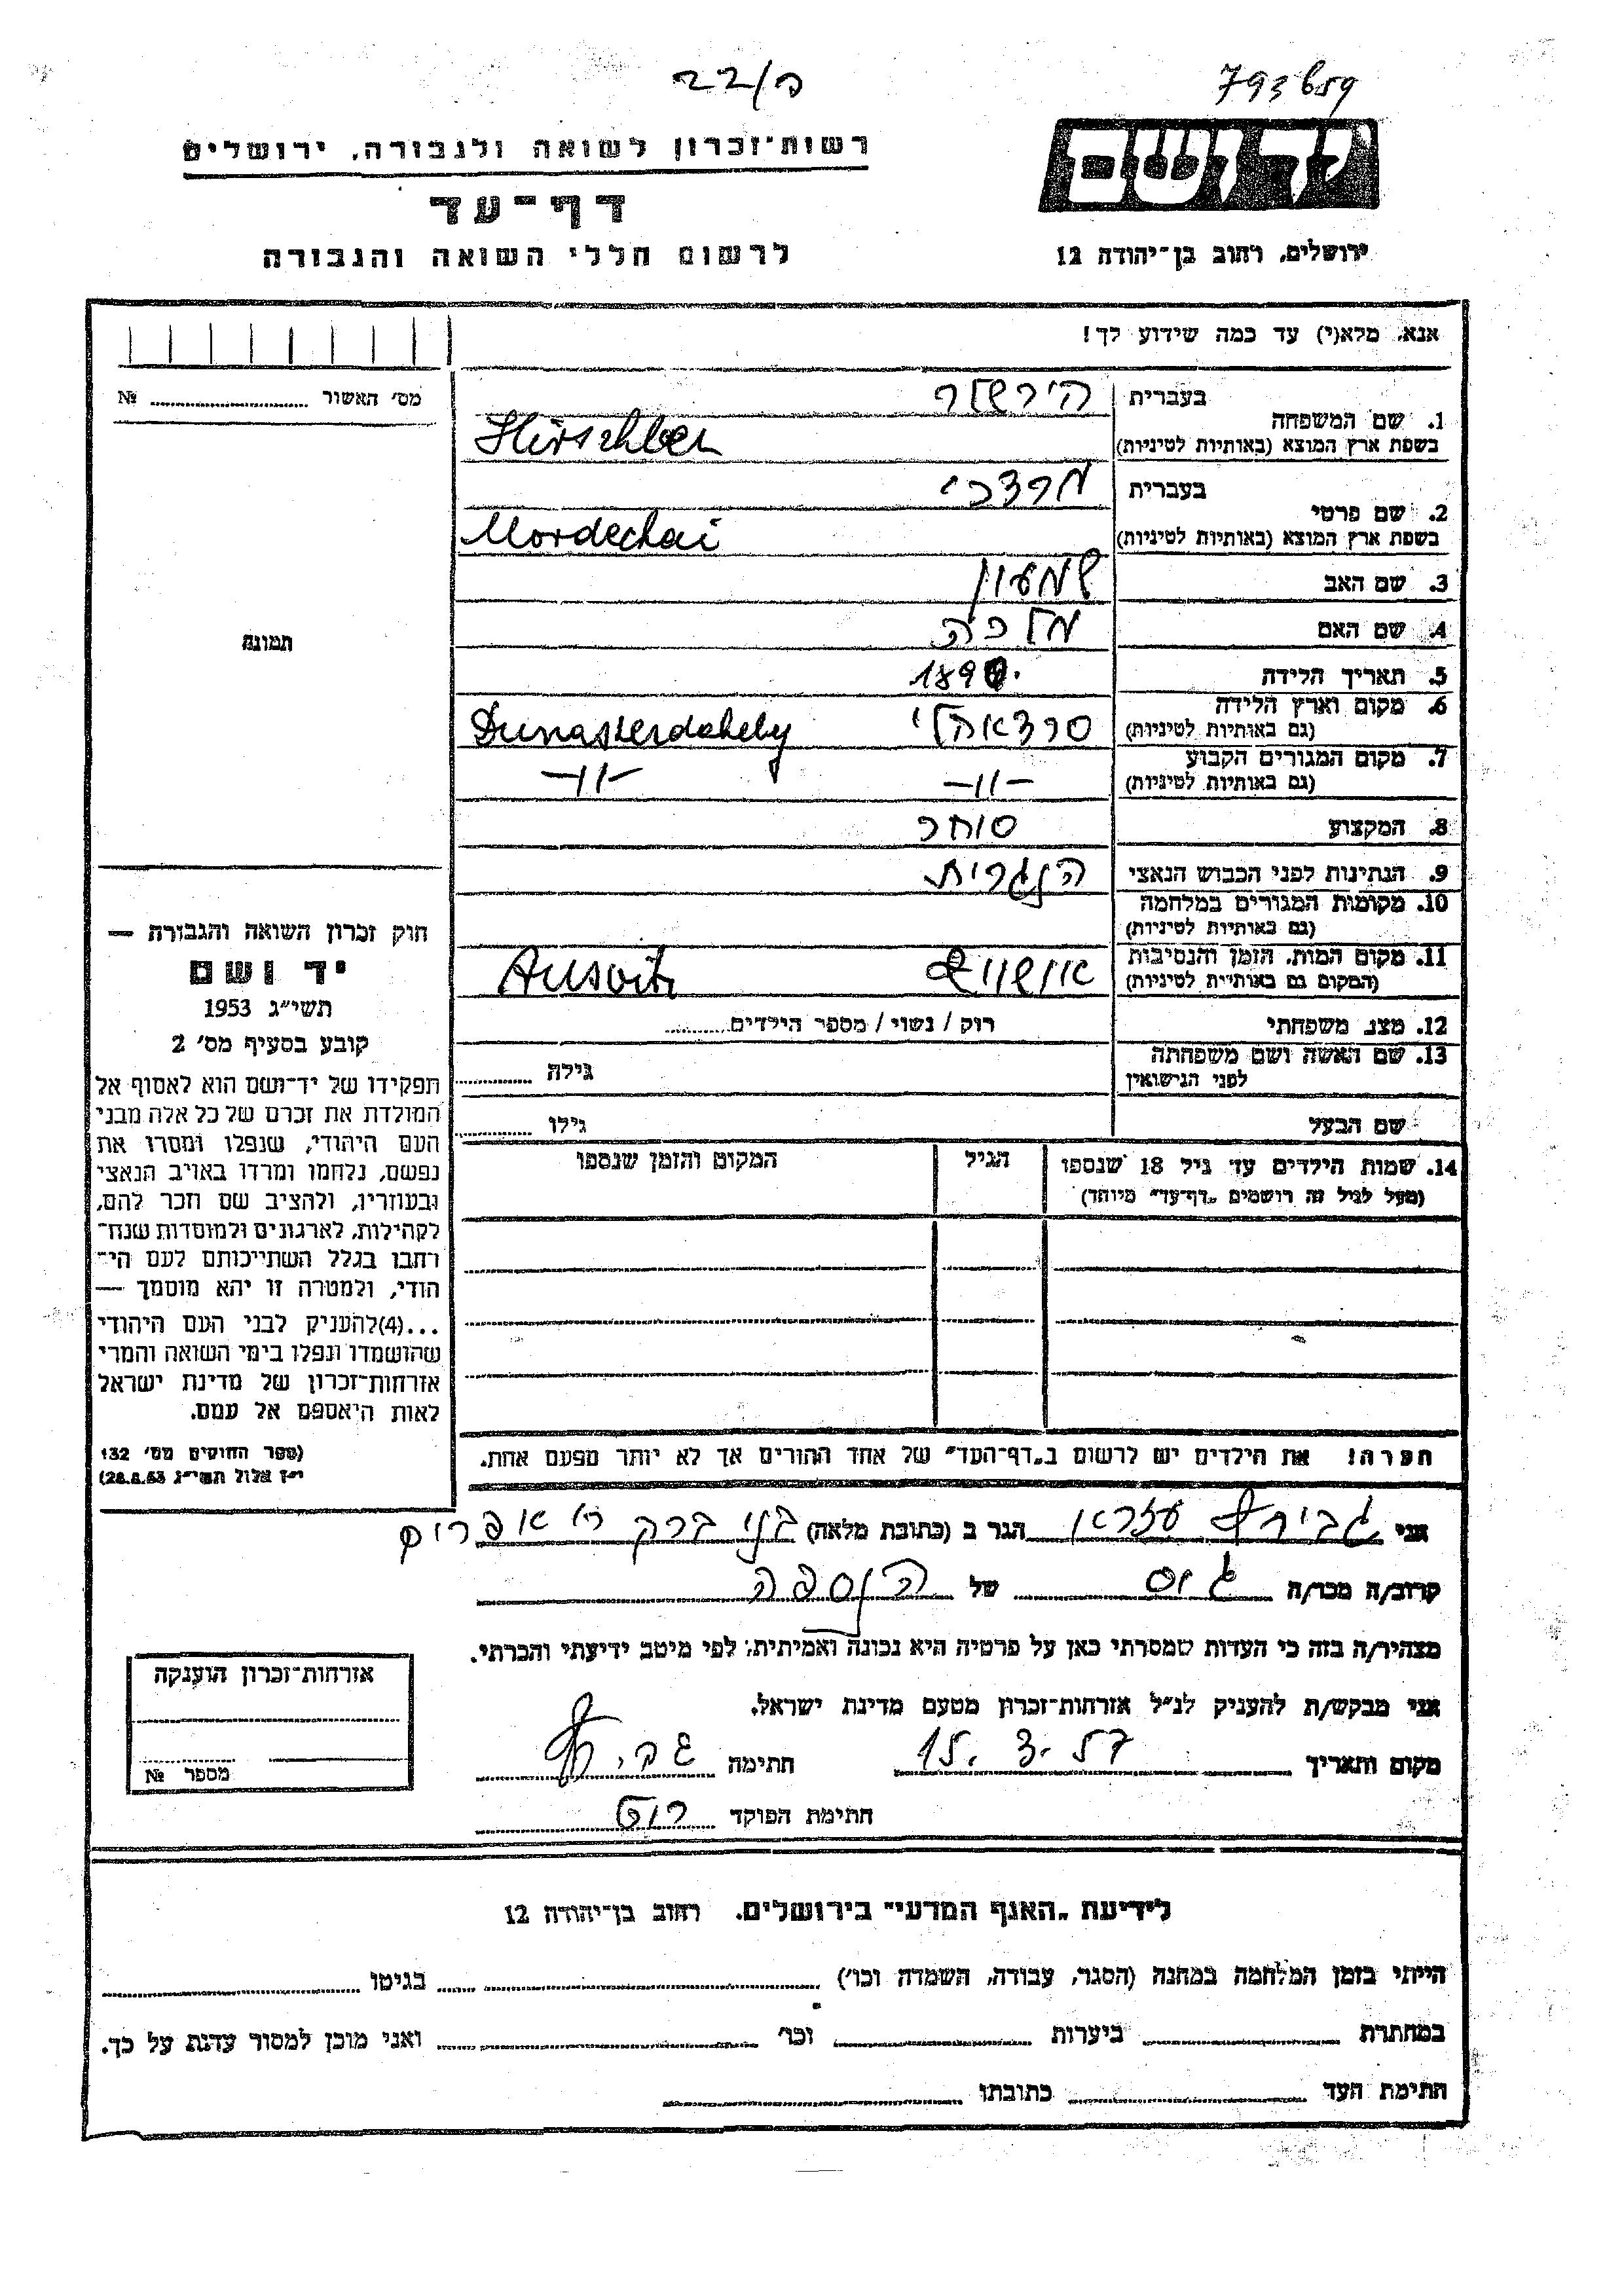 22/ה
793659
רשות־זכרון לשואה ולגבורה, ירושלים
דף־עד
לרשום חללי השואה והגבורה
יד ושם
ירושלים, רחוב בן־יהודה 12
אנא, מלא(י) עד כמה שידוע לך!
מס׳ האשור № ........
תמונה
1. שם המשפחה
בעברית הירשלר
בשפת ארץ המוצא (באותיות לטיניות) Hirschler
2. שם פרטי
בעברית מרדכי
בשפת ארץ המוצא (באותיות לטיניות) Mordechai
3. שם האב שמעון
4. שם האם מלכה
5. תאריך הלידה
6. מקום וארץ הלידה
(גם באותיות לטיניות) סרדאהלי Dunaszerdahely
7. מקום המגורים הקבוע
(גם באותיות לטיניות) -״- -״-
8. המקצוע סוחר
9. הנתינות לפני הכבוש הנאצי הנגרית
10. מקומות המגורים במלחמה
(גם באותיות לטיניות)
11. מקום המות, הזמן והנסיבות
(המקום גם באותיות לטיניות) אושוויץ Ausvitz
12. מצב משפחתי רוק / נשוי / מספר הילדים........
13. שם האשה ושם משפחתה
לפני הנישואין גילה ........
שם הבעל גילו ........
14. שמות הילדים עד גיל 18 שנספו
(מעל לגיל זה רושמים „דף־עד״ מיוחד)
הגיל
המקום והזמן שנספו
הערה! את הילדים יש לרשום ב„דף־העד״ של אחד ההורים אך לא יותר מפעם אחת.
חוק זכרון השואה והגבורה —
יד ושם
תשי״ג 1953
קובע בסעיף מס׳ 2
תפקידו של יד־ושם הוא לאסוף אל
המולדת את זכרם של כל אלה מבני
העם היהודי, שנפלו ומסרו את
נפשם, נלחמו ומרדו באויב הנאצי
ובעוזריו, ולהציב שם וזכר להם,
לקהילות, לארגונים ולמוסדות שנח־
רחבו בגלל השתייכותם לעם הי־
הודי, ולמטרה זו יהא מוסמך —
...(4)להעניק לבני העם היהודי
שהושמדו ונפלו בימי השואה והמרי
אזרחות־זכרון של מדינת ישראל
לאות היאספם אל עמם.
(ספר החוקים מס׳ 132
י״ז אלול תשי״ג 28.8.53)
אני עזרא הגר ב (כתובת מלאה) בני ברק ר׳ אפרים
קרוב/ה מכר/ה גיס של הנספה
מצהיר/ה בזה כי העדות שמסרתי כאן על פרטיה היא נכונה ואמיתית, לפי מיטב ידיעתי והכרתי.
אני מבקש/ת להעניק לנ״ל אזרחות־זכרון מטעם מדינת ישראל.
מקום ותאריך 15.3.57 חתימה
חתימת הפוקד רוט
אזרחות־זכרון הוענקה
מספר №
לידיעת „האגף המדעי״ בירושלים. רחוב בן־יהודה 12
הייתי בזמן המלחמה במחנה (הסגר, עבודה, השמדה וכו׳) ........ בגיטו ........
במחתרת ........ ביערות ........ וכו׳ ........ ואני מוכן למסור עדות על כך.
חתימת העד ........ כתובתו ........